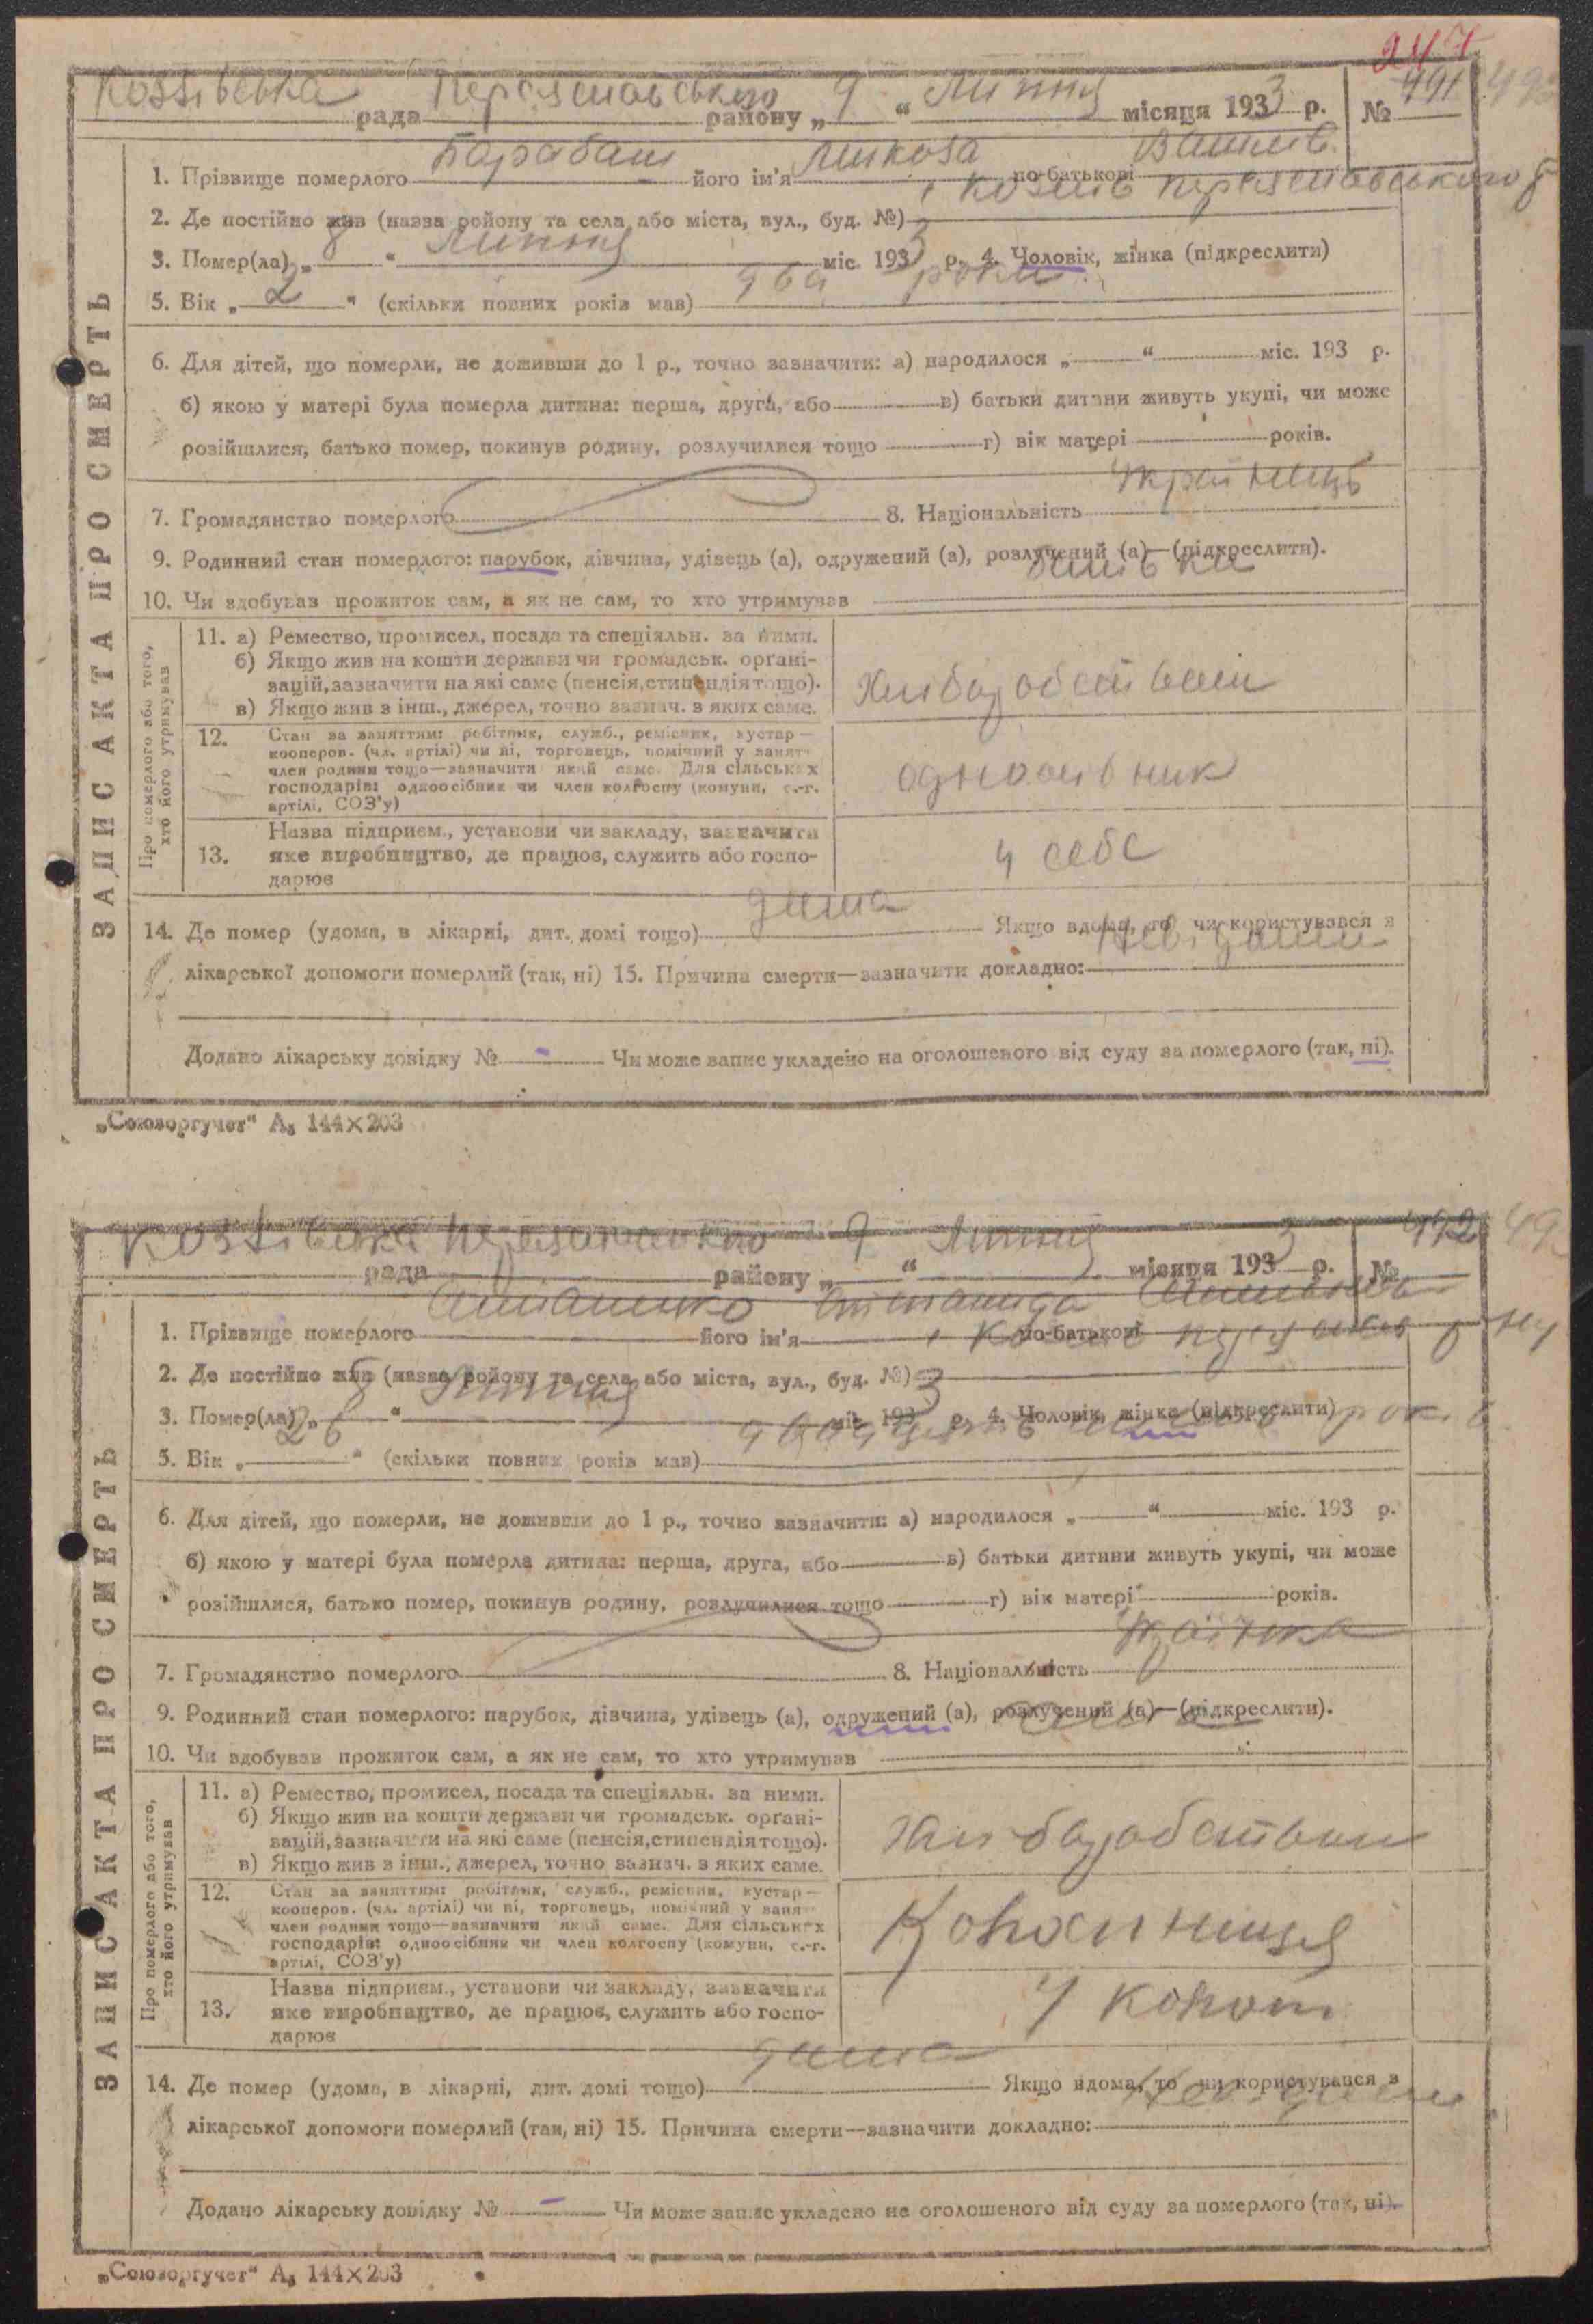 247
Козлівська рада Переяславського району „ 9 “ Липня місяця 1933 р. № 491
1. Прізвище померлого Барабаш його ім'я Микола по-батькові
2. Де постійно жив (назва району та села, або міста, вул., буд. №) с. Козлів Переяславського р
3. Помер(ла) „ 8 “ Липня міс. 1933 р. 4. Чоловік, жінка (підкреслити)
5. Вік „ 2 “ (скільки повних років мав) два роки
6. Для дітей, що померли, не доживши до 1 р., точно зазначити: а) народилося „ “ міс. 193 р.
б) якою у матері була померла дитина: перша, друга, або в) батьки дитини живуть укупі, чи може
розійшлися, батько помер, покинув родину, розлучилися тощо г) вік матері років.
7. Громадянство померлого 8. Національність Українець
9. Родинний стан померлого: парубок, дівчина, удівець (а), одружений (а), розлучений (а)—(підкреслити).
10. Чи здобував прожиток сам, а як не сам, то хто утримував батьки
ЗАПИС АКТА ПРО СМЕРТЬ
Про померлого або того, хто його утримував
11. а) Ремество, промисел, посада та спеціяльн. за ними.
б) Якщо жив на кошти держави чи громадськ. орґані-
зацій, зазначити на які саме (пенсія, стипендія тощо).
в) Якщо жив з інш., джерел, точно зазнач. з яких саме.
Хліборобством
12. Стан за заняттям: робітник, служб., ремісник, кустар—
кооперов. (чл. артілі) чи ні, торговець, помічний у занят.
член родини тощо—зазначити який саме. Для сільських
господарів: одноосібник чи член колгоспу (комуни, с.-г.
артілі, СОЗ'у)
одноосібник
13. Назва підприєм., установи чи закладу, зазначити
яке виробництво, де працює, служить або госпо-
дарює
у себе
14. Де помер (удома, в лікарні, дит. домі тощо) дома Якщо вдома, то чи користувався з
лікарської допомоги померлий (так, ні) 15. Причина смерти—зазначити докладно: Невідомо
Додано лікарську довідку № - Чи може запис укладено на оголошеного від суду за померлого (так, ні).
„Союзоргучет“ А₅ 144×203
Козлівська рада Переяславського району „ 9 “ Липня місяця 1933 р. № 492
1. Прізвище померлого його ім'я по-батькові
2. Де постійно жив (назва району та села, або міста, вул., буд. №) с. Козлів
3. Помер(ла) „ 8 “ Липня міс. 1933 р. 4. Чоловік, жінка (підкреслити)
5. Вік „ 26 “ (скільки повних років мав) двадцять шість років
6. Для дітей, що померли, не доживши до 1 р., точно зазначити: а) народилося „ “ міс. 193 р.
б) якою у матері була померла дитина: перша, друга, або в) батьки дитини живуть укупі, чи може
розійшлися, батько помер, покинув родину, розлучилися тощо г) вік матері років.
7. Громадянство померлого 8. Національність Українка
9. Родинний стан померлого: парубок, дівчина, удівець (а), одружений (а), розлучений (а)—(підкреслити).
10. Чи здобував прожиток сам, а як не сам, то хто утримував сама
ЗАПИС АКТА ПРО СМЕРТЬ
Про померлого або того, хто його утримував
11. а) Ремество, промисел, посада та спеціяльн. за ними.
б) Якщо жив на кошти держави чи громадськ. орґані-
зацій, зазначити на які саме (пенсія, стипендія тощо).
в) Якщо жив з інш., джерел, точно зазнач. з яких саме.
Хліборобством
12. Стан за заняттям: робітник, служб., ремісник, кустар—
кооперов. (чл. артілі) чи ні, торговець, помічний у занят.
член родини тощо—зазначити який саме. Для сільських
господарів: одноосібник чи член колгоспу (комуни, с.-г.
артілі, СОЗ'у)
Колхозниця
13. Назва підприєм., установи чи закладу, зазначити
яке виробництво, де працює, служить або госпо-
дарює
у колхозі
14. Де помер (удома, в лікарні, дит. домі тощо) дома Якщо вдома, то чи користувався з
лікарської допомоги померлий (так, ні) 15. Причина смерти—зазначити докладно: Невідомо
Додано лікарську довідку № - Чи може запис укладено на оголошеного від суду за померлого (так, ні).
„Союзоргучет“ А₅ 144×203